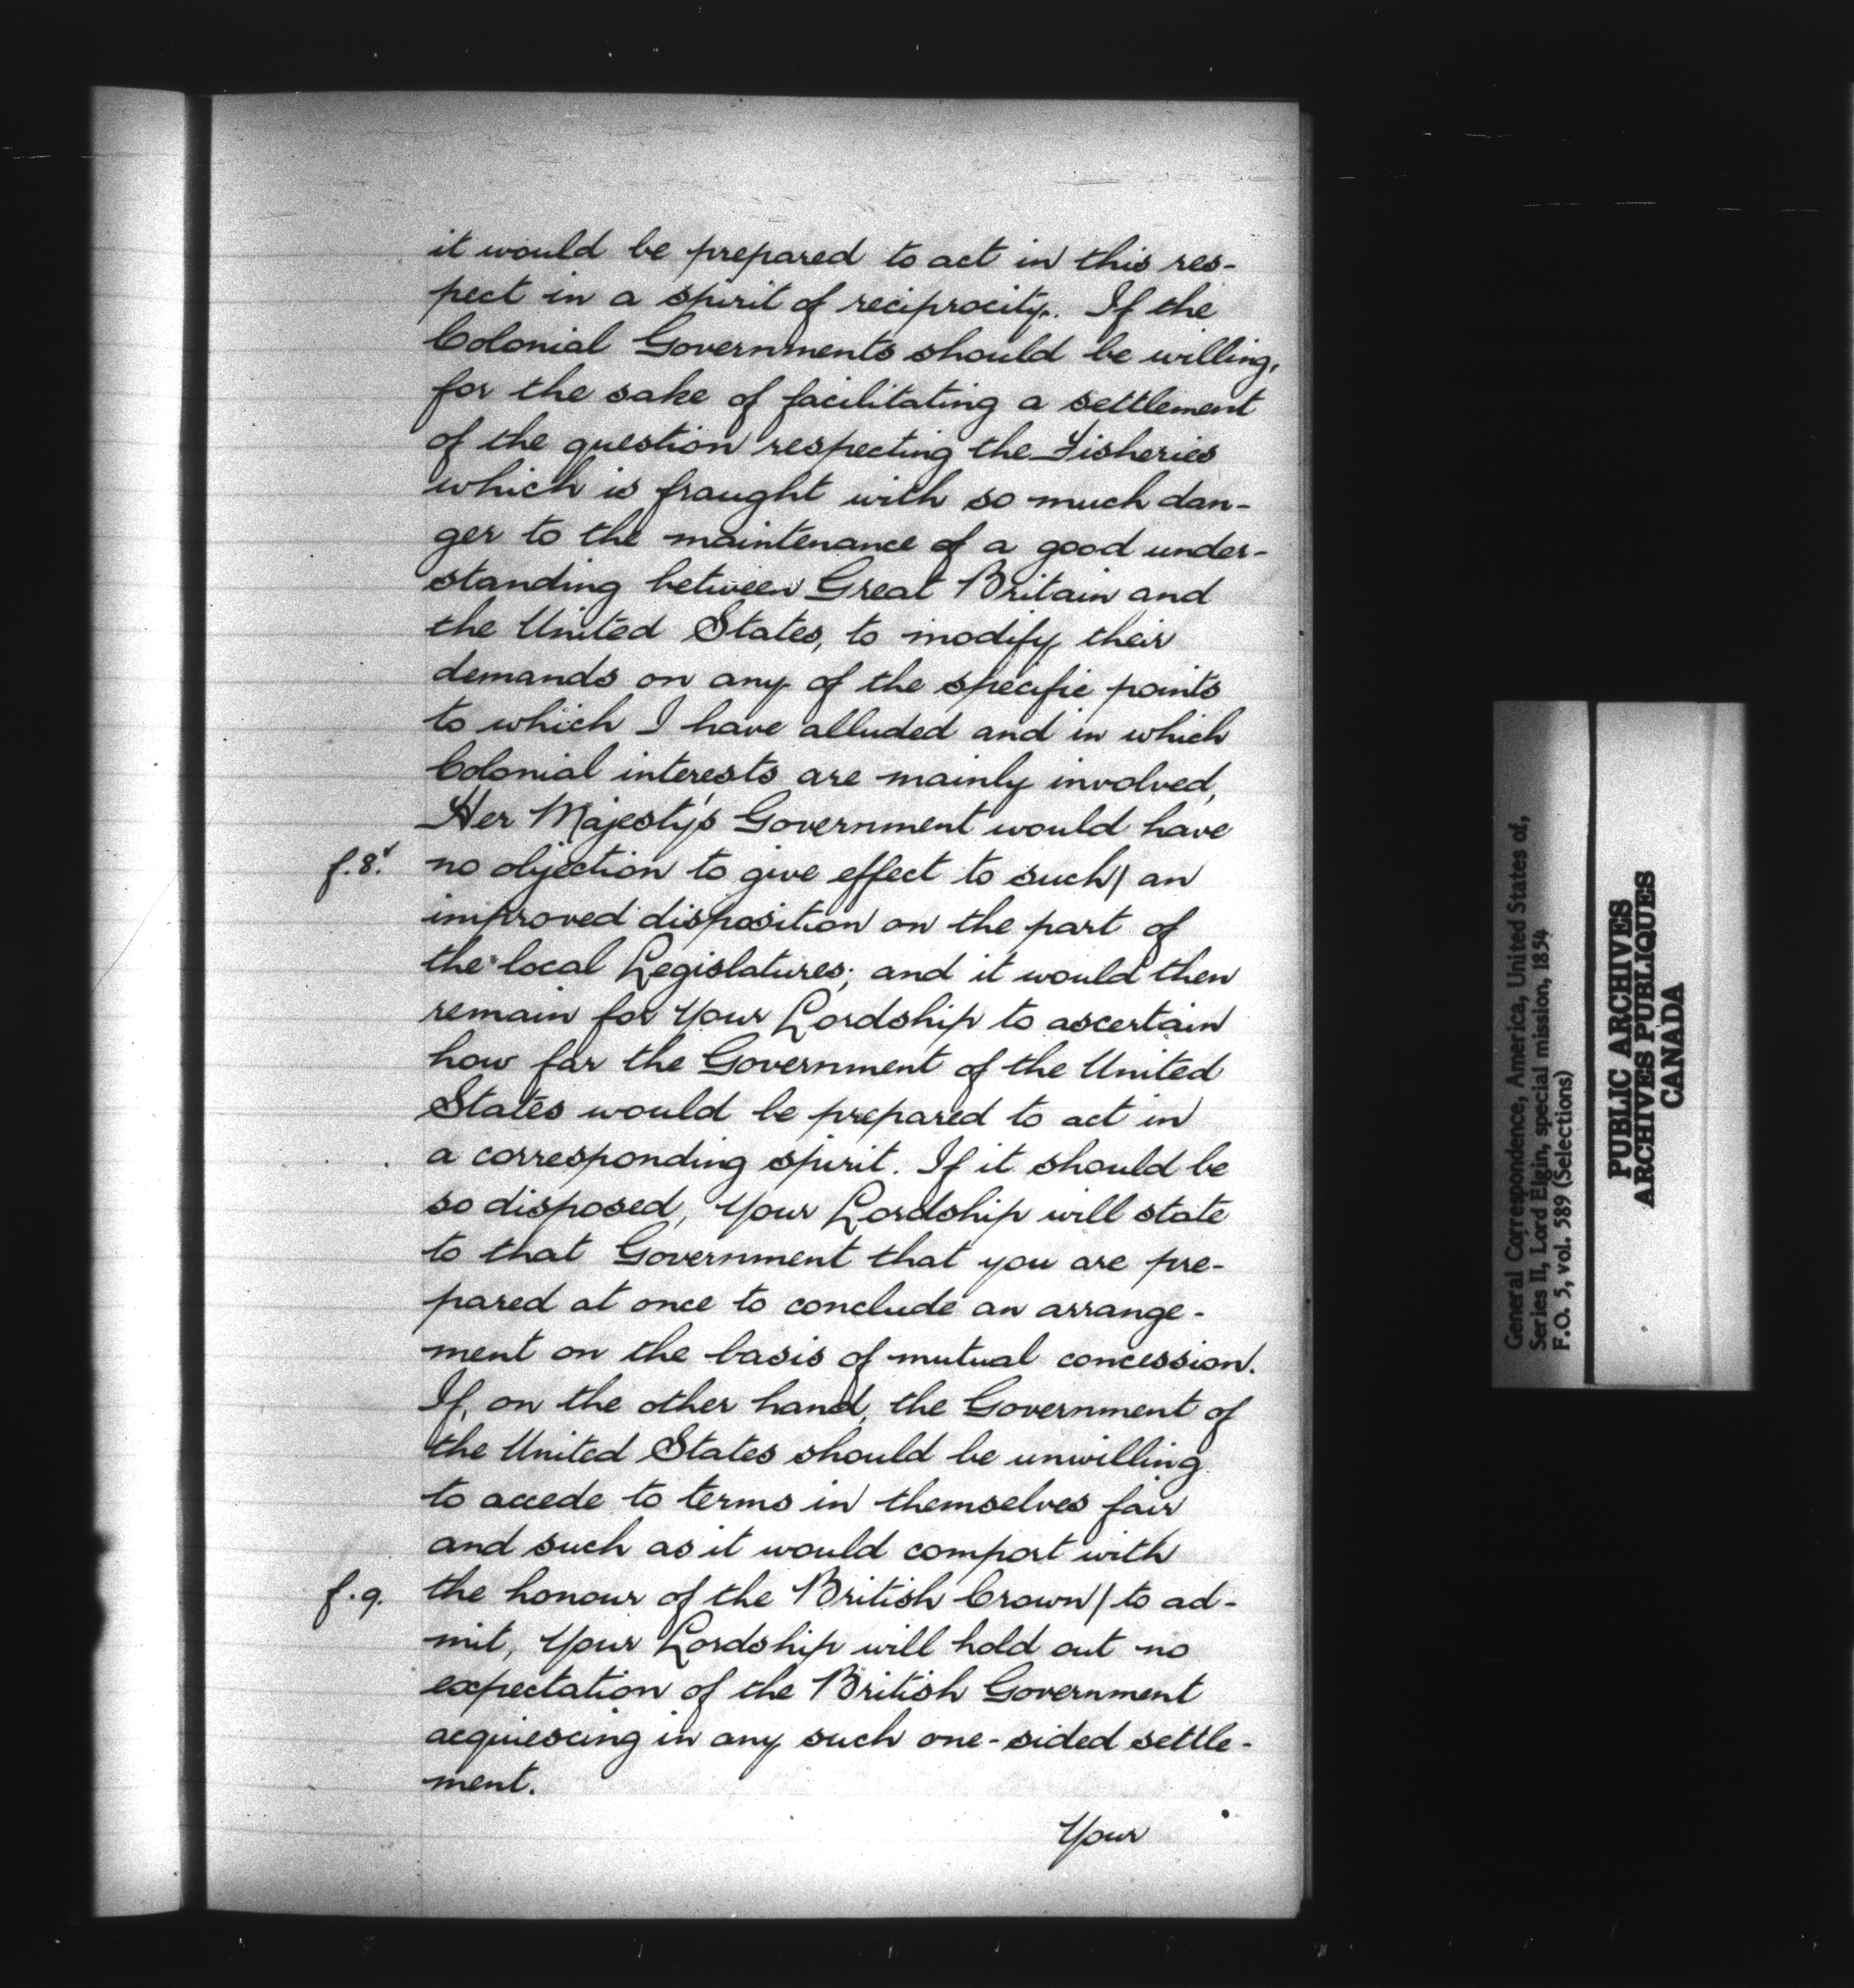 it would be prepared to act in this res-
pect in a spirit of reciprocity. If the
Colonial Governments should be willing,
for the sake of facilitating a settlement
of the question respecting the Fisheries
which is fraught with so much dan-
ger to the maintenance of a good under-
standing between Great Britain and
the United States, to modify their
demands on any of the specific points
to which I have alluded and in which
Colonial interests are mainly involved,
Her Majesty's Government would have
f.8v. no objection to give effect to such/ an
improved disposition on the part of
the local Legislatures; and it would then
remain for Your Lordship to ascertain
how far the Government of the United
States would be prepared to act in
a corresponding spirit. If it should be
so disposed, Your Lordship will state
to that Government that you are pre-
pared at once to conclude an arrange-
ment on the basis of mutual concession.
If, on the other hand, the Government of
the United States should be unwilling
to accede to terms in themselves fair
and such as it would comport with
f.9. the honour of the British Crown/ to ad-
mit, Your Lordship will hold out no
expectation of the British Government
acquiescing in any such one-sided settle-
ment.
Your
General Correspondence, America, United States of,
Series II, Lord Elgin, special mission, 1854
F.O. 5, vol. 589 (Selections)
PUBLIC ARCHIVES
ARCHIVES PUBLIQUES
CANADA